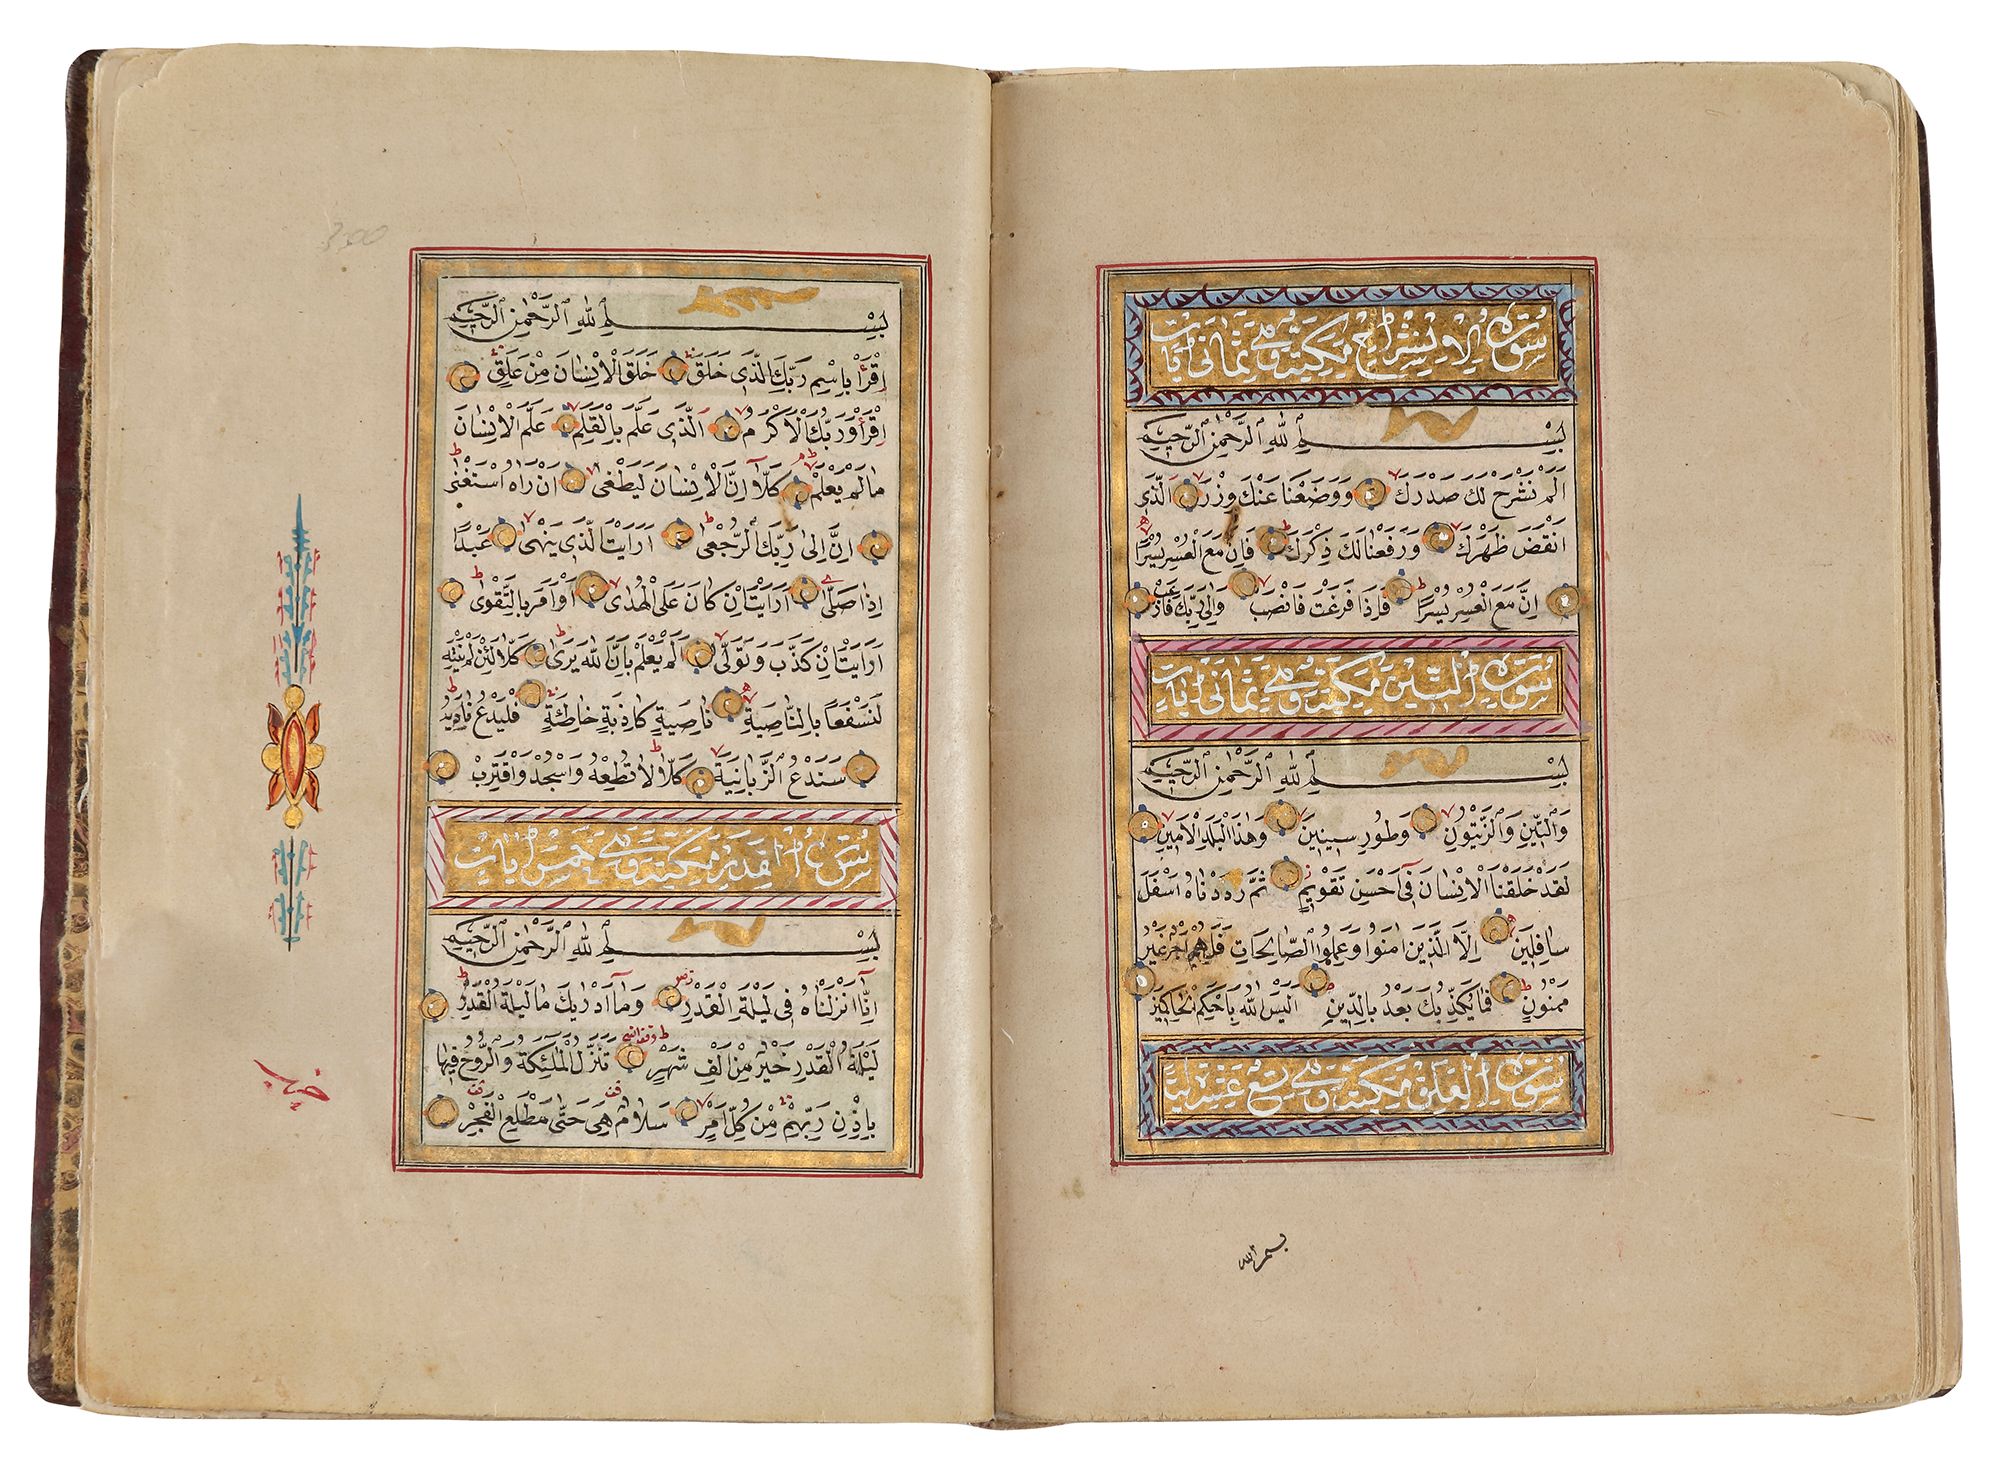 سورة الانشراح مكية وهي ثماني ايات
بِسْمِ اللهِ الرَّحْمٰنِ الرَّحِيمِ
اَلَمْ نَشْرَحْ لَكَ صَدْرَكَ وَوَضَعْنَا عَنْكَ وِزْرَكَ اَلَّذِى
اَنْقَضَ ظَهْرَكَ وَرَفَعْنَا لَكَ ذِكْرَكَ فَاِنَّ مَعَ الْعُسْرِ يُسْرًا
اِنَّ مَعَ الْعُسْرِ يُسْرًا فَاِذَا فَرَغْتَ فَانْصَبْ وَاِلٰى رَبِّكَ فَارْغَبْ
سورة التين مكية وهي ثماني ايات
بِسْمِ اللهِ الرَّحْمٰنِ الرَّحِيمِ
وَالتِّينِ وَالزَّيْتُونِ وَطُورِ سِينِينَ وَهٰذَا الْبَلَدِ الْاَمِينِ
لَقَدْ خَلَقْنَا الْاِنْسَانَ فِى اَحْسَنِ تَقْوِيمٍ ثُمَّ رَدَدْنَاهُ اَسْفَلَ
سَافِلِينَ اِلَّا الَّذِينَ اٰمَنُوا وَعَمِلُوا الصَّالِحَاتِ فَلَهُمْ اَجْرٌ غَيْرُ
مَمْنُونٍ فَمَا يُكَذِّبُكَ بَعْدُ بِالدِّينِ اَلَيْسَ اللهُ بِاَحْكَمِ الْحَاكِمِينَ
سورة العلق مكية وهي تسع عشرة ايات
بسم الله
بِسْمِ اللهِ الرَّحْمٰنِ الرَّحِيمِ
اِقْرَأْ بِاسْمِ رَبِّكَ الَّذِى خَلَقَ خَلَقَ الْاِنْسَانَ مِنْ عَلَقٍ
اِقْرَأْ وَرَبُّكَ الْاَكْرَمُ اَلَّذِى عَلَّمَ بِالْقَلَمِ عَلَّمَ الْاِنْسَانَ
مَا لَمْ يَعْلَمْ كَلَّا اِنَّ الْاِنْسَانَ لَيَطْغٰى اَنْ رَاٰهُ اسْتَغْنٰى
اِنَّ اِلٰى رَبِّكَ الرُّجْعٰى اَرَاَيْتَ الَّذِى يَنْهٰى عَبْدًا
اِذَا صَلّٰى اَرَاَيْتَ اِنْ كَانَ عَلَى الْهُدٰى اَوْ اَمَرَ بِالتَّقْوٰى
اَرَاَيْتَ اِنْ كَذَّبَ وَتَوَلّٰى اَلَمْ يَعْلَمْ بِاَنَّ اللهَ يَرٰى كَلَّا لَئِنْ لَمْ يَنْتَهِ
لَنَسْفَعًا بِالنَّاصِيَةِ نَاصِيَةٍ كَاذِبَةٍ خَاطِئَةٍ فَلْيَدْعُ نَادِيَهُ
سَنَدْعُ الزَّبَانِيَةَ كَلَّا لَا تُطِعْهُ وَاسْجُدْ وَاقْتَرِبْ
سورة القدر مكية وهي خمس ايات
بِسْمِ اللهِ الرَّحْمٰنِ الرَّحِيمِ
اِنَّا اَنْزَلْنَاهُ فِى لَيْلَةِ الْقَدْرِ وَمَا اَدْرٰيكَ مَا لَيْلَةُ الْقَدْرِ
لَيْلَةُ الْقَدْرِ خَيْرٌ مِنْ اَلْفِ شَهْرٍ تَنَزَّلُ الْمَلٰئِكَةُ وَالرُّوحُ فِيهَا
بِاِذْنِ رَبِّهِمْ مِنْ كُلِّ اَمْرٍ سَلَامٌ هِىَ حَتّٰى مَطْلَعِ الْفَجْرِ